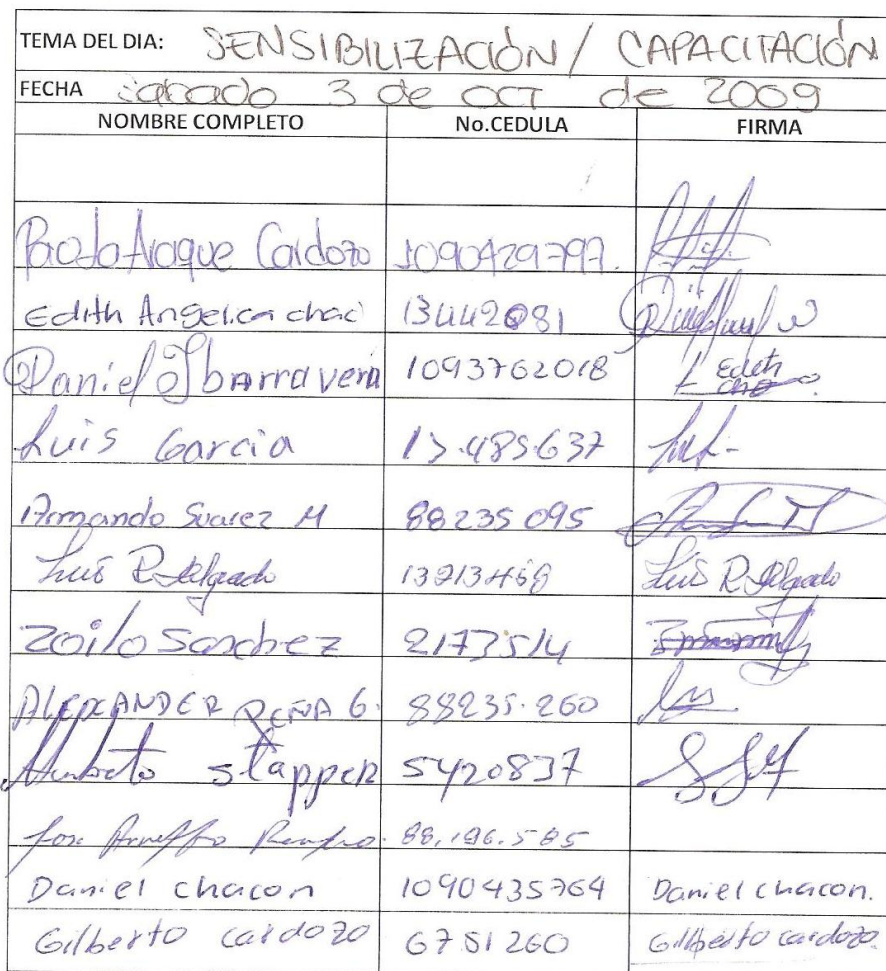 TEMA DEL DIA: SENSIBILIZACIÓN / CAPACITACIÓN
FECHA sabado 3 de OCT de 2009
NOMBRE COMPLETO No.CEDULA FIRMA
Paola Araque Cardozo 1090429797.
Edith Angelica chac 13442081
Daniel Ibarra vera 1093762018 Edith
Luis Garcia 13.485.637
Armando Suarez M 88235095
Luis R Delgado 13213469 Luis R Delgado
Zoilo Sanchez 2173514
ALEXANDER PEÑA G. 88235.260
Humberto stapper 5420837
88.196.585
Daniel chacon 1090435764 Daniel chacon.
Gilberto cardozo 6751260 Gilberto cardozo.